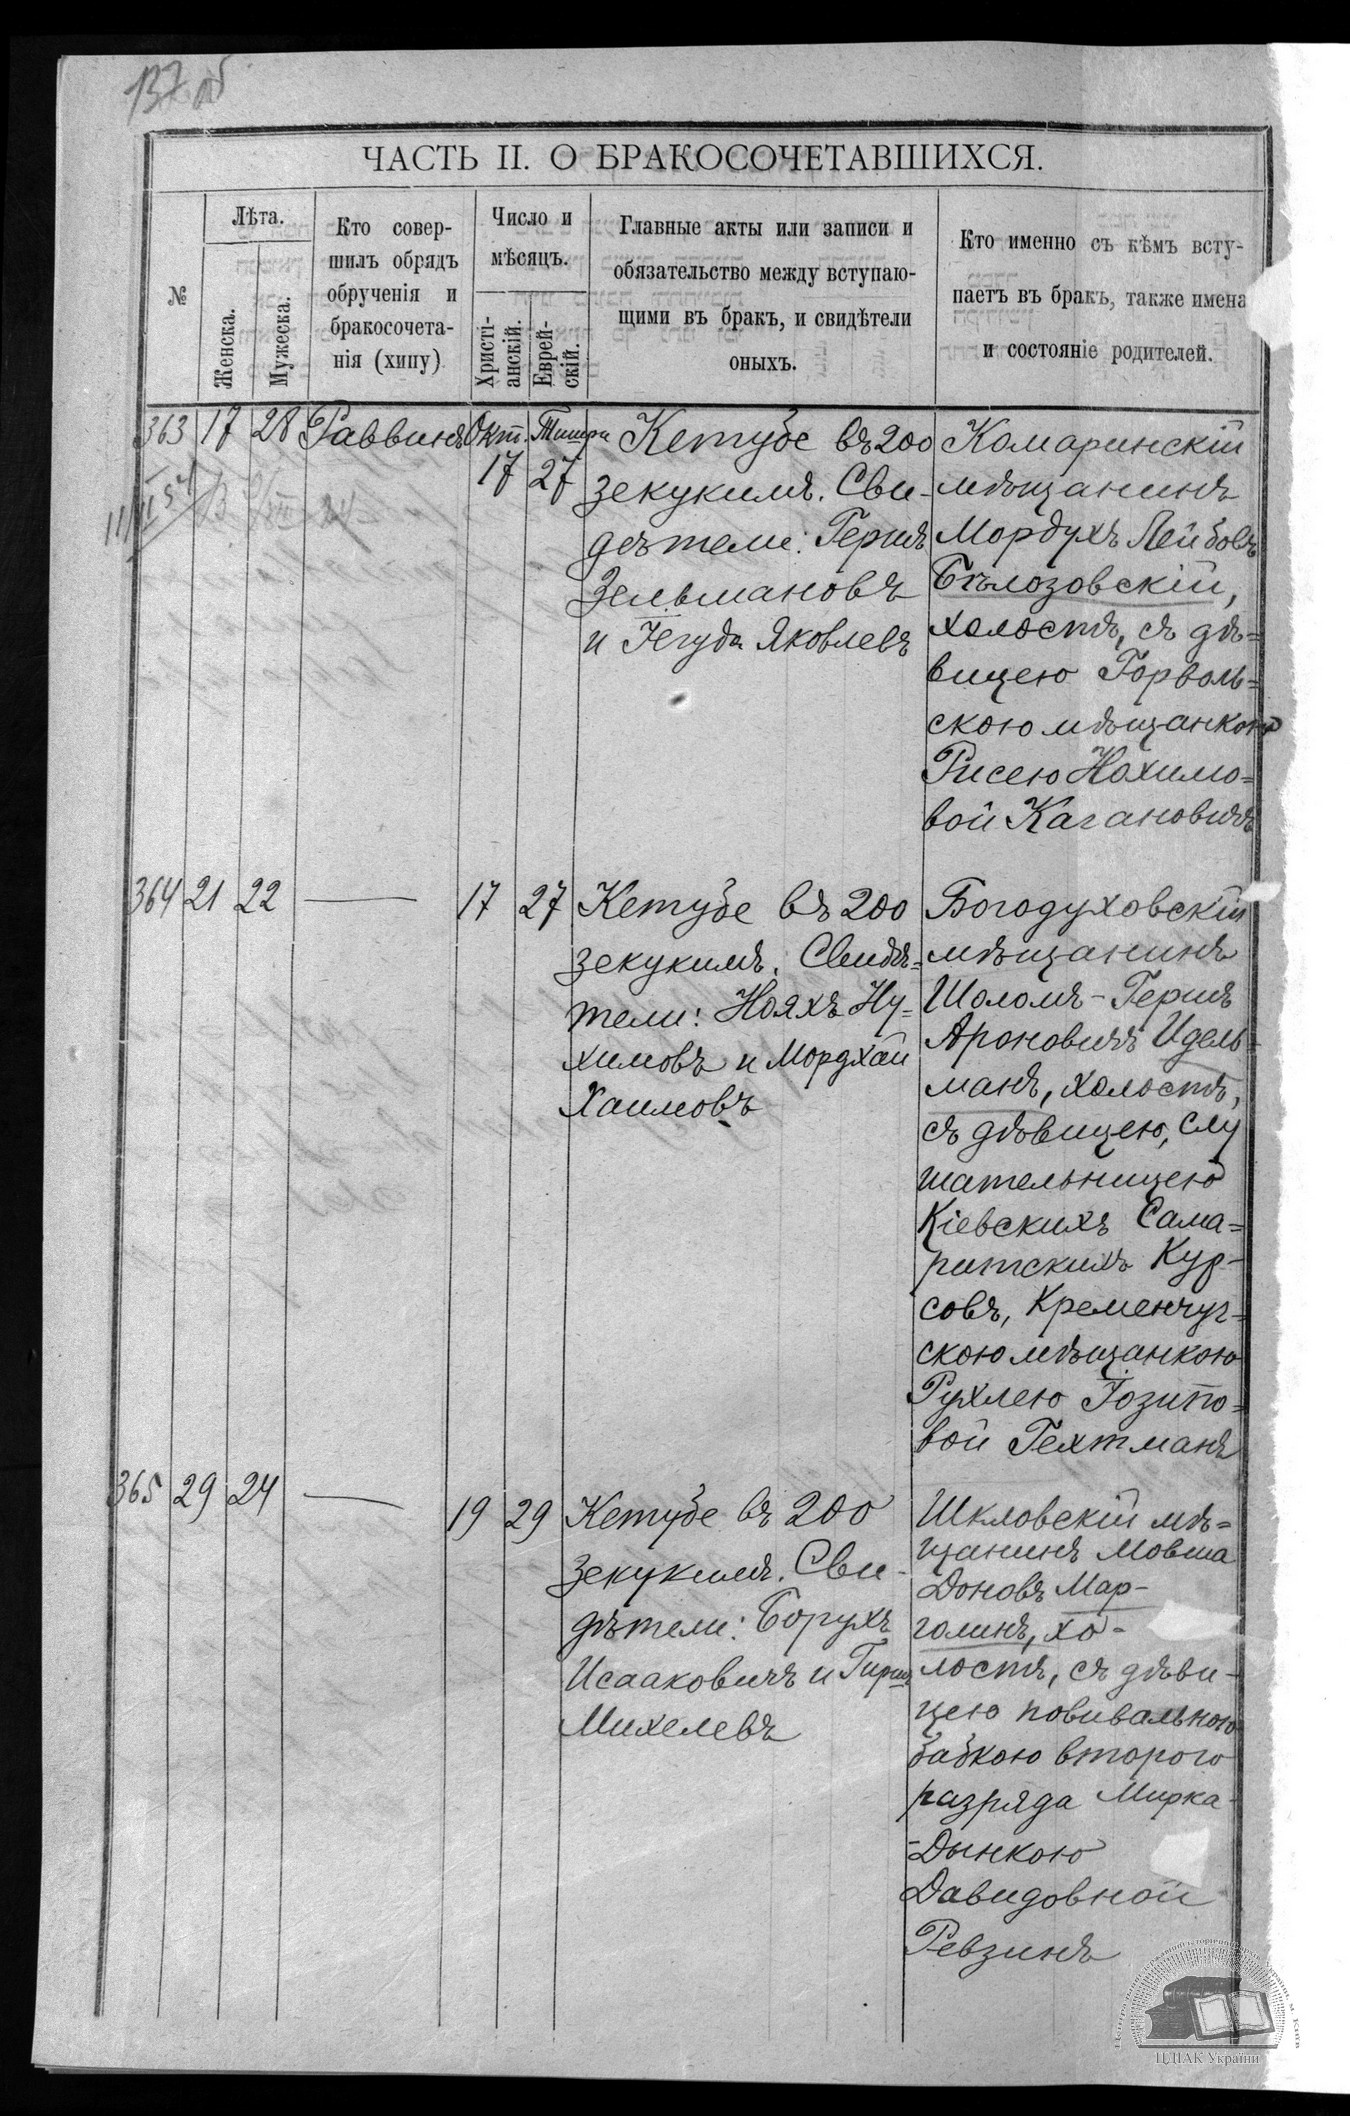 137 об
ЧАСТЬ II. О БРАКОСОЧЕТАВШИХСЯ.
№
Лѣта.
Женска.
Мужеска.
Кто совер-
шилъ обрядъ
обрученія и
бракосочета-
нія (хипу)
Число и
мѣсяцъ.
Христі-
анскій.
Еврей-
скій.
Главные акты или записи и
обязательство между вступаю-
щими въ бракъ, и свидѣтели
оныхъ.
Кто именно съ кѣмъ всту-
паетъ въ бракъ, также имена
и состояніе родителей.
363 17 28 Раввинъ Окт. Тишри
17 27
Кетубе въ 200
зекукимъ. Сви-
дѣтели: Гершъ
Зельмановъ
и Іегуда Яковлевъ
Комаринскій
мѣщанинъ
Мордухъ Лейбовъ
Бѣлозовскій,
холостъ, съ дѣ=
вицею Горволь=
скою мѣщанкою
Рисею Нохимо=
вой Кагановичъ
364 21 22 — 17 27
Кетубе въ 200
зекукимъ. Свидѣ=
тели: Нояхъ Ну=
химовъ и Мордхай
Хаимовъ
Богодуховскій
мѣщанинъ
Шоломъ-Гершъ
Ароновичъ Идель-
манъ, холостъ,
съ дѣвицею, слу
шательницею
Кіевскихъ Сама=
ритскихъ Кур-
совъ, Кременчуг-
скою мѣщанкою
Рухлею Іозипо=
вой Гехтманъ
365 29 24 — 19 29
Кетубе въ 200
зекукимъ. Сви-
дѣтели: Борухъ
Исааковичъ и Гиршъ
Михелевъ
Шкловскій мѣ=
щанинъ Мовша
Доновъ Мар-
голинъ, хо-
лостъ, съ дѣви-
цею повивальною
бабкою второго
разряда Мирка-
-Дынкою
Давидовной
Ревзинъ
ЦДІАК України